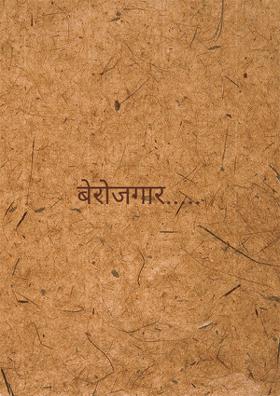 बेरोजगार.....